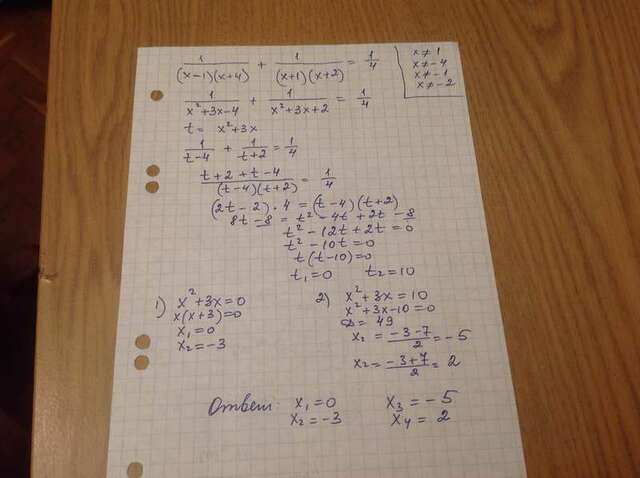 1/((x-1)(x+4)) + 1/((x+1)(x+2)) = 1/4
x≠1
x≠-4
x≠-1
x≠-2
1/(x²+3x-4) + 1/(x²+3x+2) = 1/4
t = x²+3x
1/(t-4) + 1/(t+2) = 1/4
(t+2+t-4)/((t-4)(t+2)) = 1/4
(2t-2)·4 = (t-4)(t+2)
8t-8 = t²-4t+2t-8
t²-12t+2t=0
t²-10t=0
t(t-10)=0
t₁=0 t₂=10
1) x²+3x=0
x(x+3)=0
x₁=0
x₂=-3
2) x²+3x=10
x²+3x-10=0
D=49
x₁=(-3-7)/2=-5
x₂=(-3+7)/2=2
Ответ: x₁=0 x₃=-5
x₂=-3 x₄=2